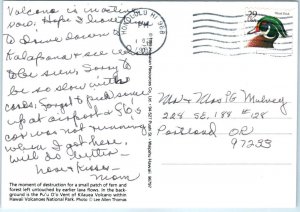 Volcano is making
now. Hope I have
to drive down to
Kalapana & see
to be seen. Sorry to
be so slow with
cards, Forgot to pick some
up at airport &
car was not running
when I got here,
will do better.
Love & Kisses
Mom
The moment of destruction for a small patch of fern and
forest left untouched by earlier lava flows. In the back-
ground is the Pu'u O'o Vent of Kilayea Volcano within
Hawaii Volcanoes National Park. Photo © Lee Allen Thomas.
HONOLULU HI 968
PM
29
USA
Wood Duck
Mr & Mrs PG Mulvey
224 SE. 188 #128
Portland OR
97233